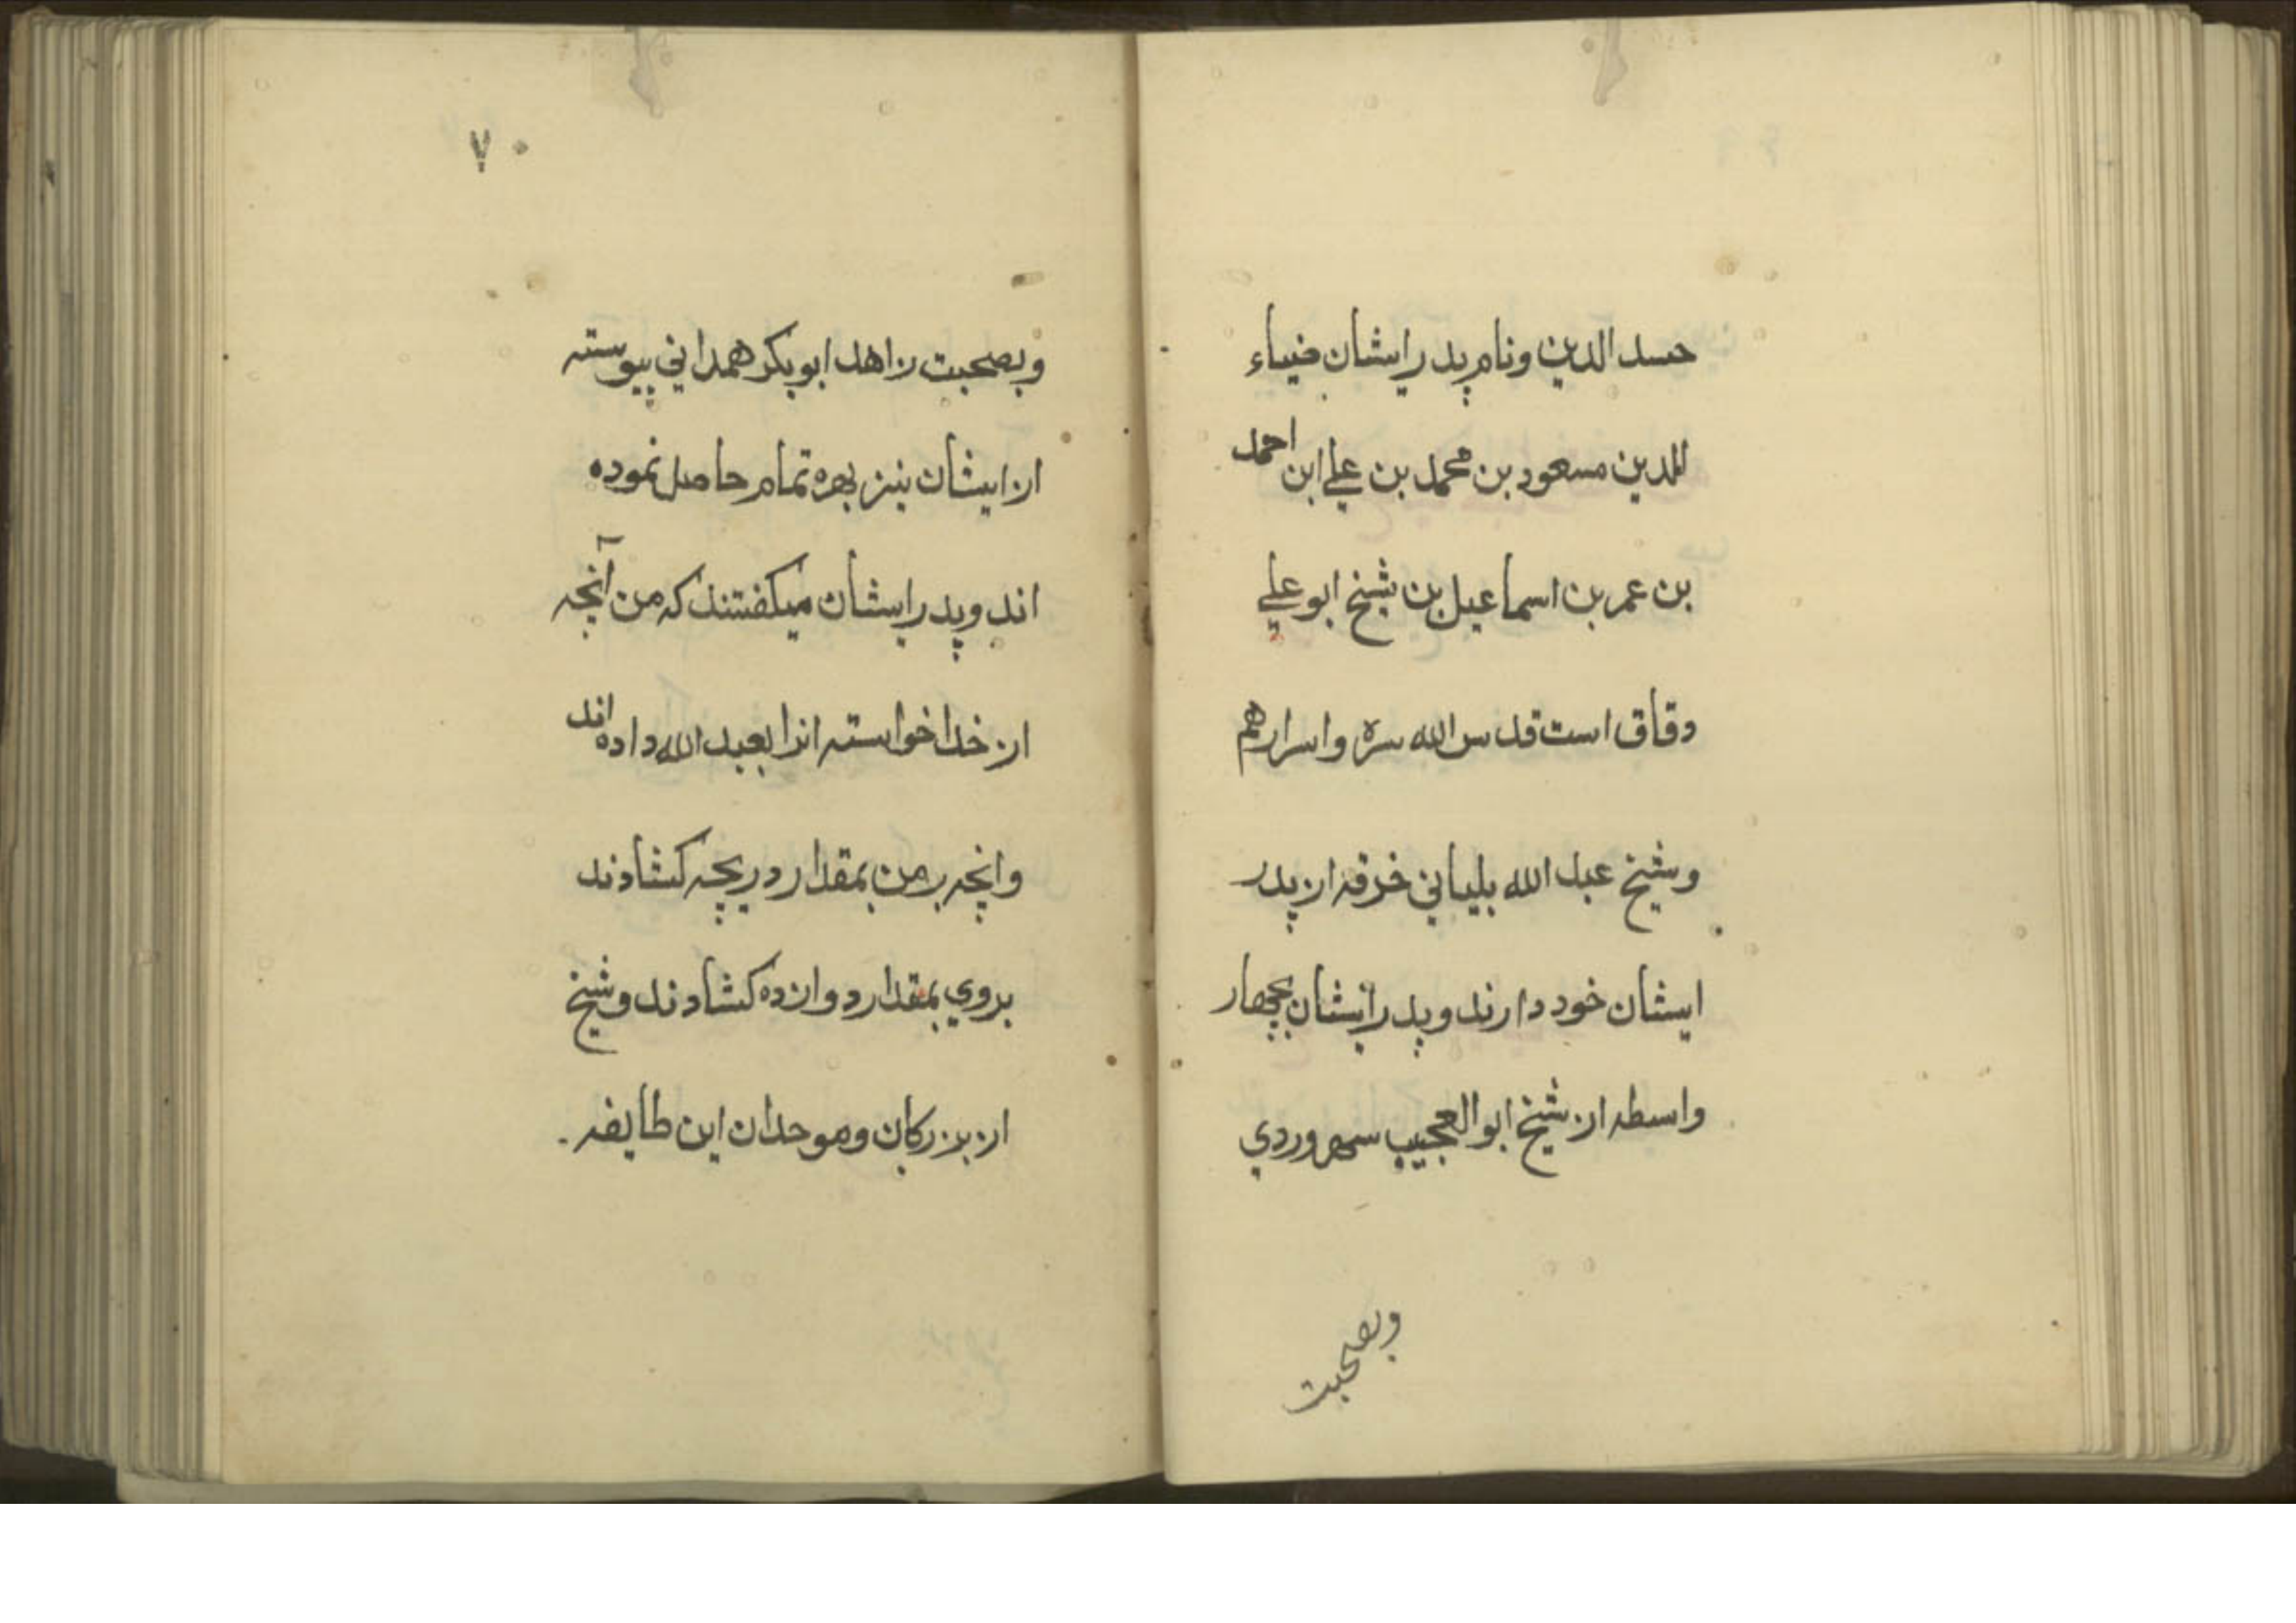 حسد الدین ونام پدر ایشان ضیاء
الدین مسعود بن محمد بن علی ابن احمد
بن عمر بن اسماعیل بن شیخ ابو علی
دقاق است قدس الله سره واسرارهم
وشیخ عبد الله بلیانی خرقه از پدر
ایشان خود دارند وپدر ایشان بچهار
واسطه از شیخ ابو العجیب سهروردي
وبصحبت
۷۰
وبصحبت زاهد ابو بکر همدانی پیوسته
از ایشان نیز بهره تمام حاصل نموده
اند وپدر ایشان میکفتند که من آنچه
از خدا خواسته انرا بعبد الله داده اند
وانچه بر من بمقدار دریچه کشادند
بروي بمقدار دروازه کشادند وشیخ
از بزرکان وموحدان این طایفه